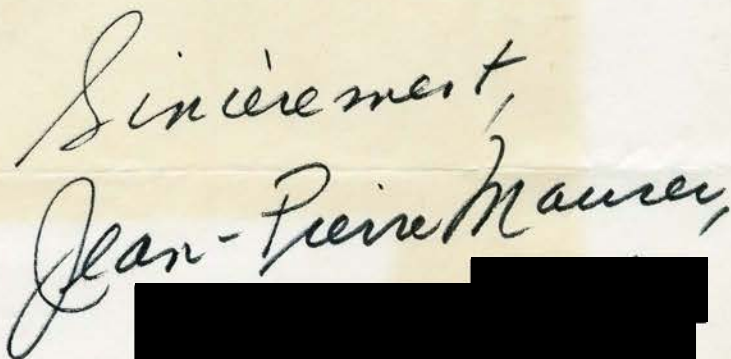 Sincèrement,
Jean-Pierre Maurer,